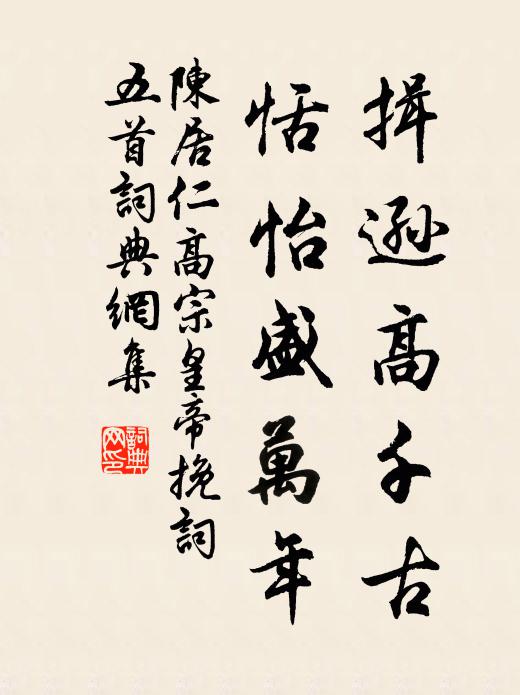 揖遜高千古
恬怡盛萬年
陳居仁高宗皇帝挽詞
五首詞典網集
詞典网印